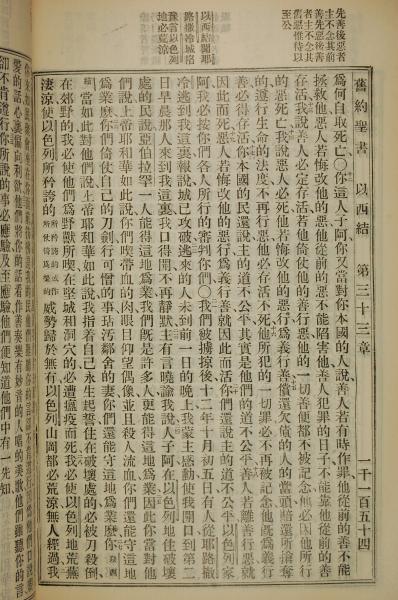 先善後惡者
主不念其前
善先惡後善
者主不念其
舊惡惟待以
至公
以西結聞耶
路撒冷城陷
豫言以色列
地必荒涼
舊約聖書　以西結　第三十三章　一千一百五十四
爲何自取死亡○你這人子阿你又當對你本國的人說善人若有時作罪他從前的善不能
拯救他惡人若悔改他的惡他從前的惡不能陷害他善人犯罪的日子不能靠他從前的善
存活我說善人必定存活若他倚使他的善行惡他的一切善便都不被記念他必因他所行
的惡死亡我說惡人必死他若悔改他的惡行爲義行善償還欠債的人的當頭賠還所搶奪
的遵行生命的法度不再行惡他必存活不死他所犯的一切罪必不再被記念他旣爲義行
善必得存活你本國的民還說主的道不公平其實是他們的道不公平善人若離善行惡就
因此而死惡人若悔改他的惡行爲義行善就因此而活你們還說主的道不公平以色列家
阿我必按你們各人所行的審判你們○我們被擄掠後十二年十月初五日有人從耶路撒
冷逃到我這裏報說城已攻破逃來的人未到前一日的晚上我蒙主感動使我開口到第二
日早晨那人來到我這裏我口得開不再靜默主有言曉諭我說人子阿在以色列地住破壞
處的民說亞伯拉罕一人能得這地爲業我們旣是許多人更能得這地爲業因此你當對他
們說上帝耶和華如此說你們喫帶血的肉眼目仰望偶像並且殺人流血你們還能守這地
爲業麼你們倚仗自己的刀劍行可憎的事玷汚鄰舍的妻你們還能守這地爲業麼你
當如此對他們說上帝耶和華如此說我指着自己永生起誓住在破壞處的必被刀殺倒
在郊野的我必使他們爲野獸所喫在堅城和洞穴的必遭瘟疫而死我必使以色列地荒蕪
淒涼使以色列所矜誇的威勢歸於無有以色列山岡都必荒涼無人經過我